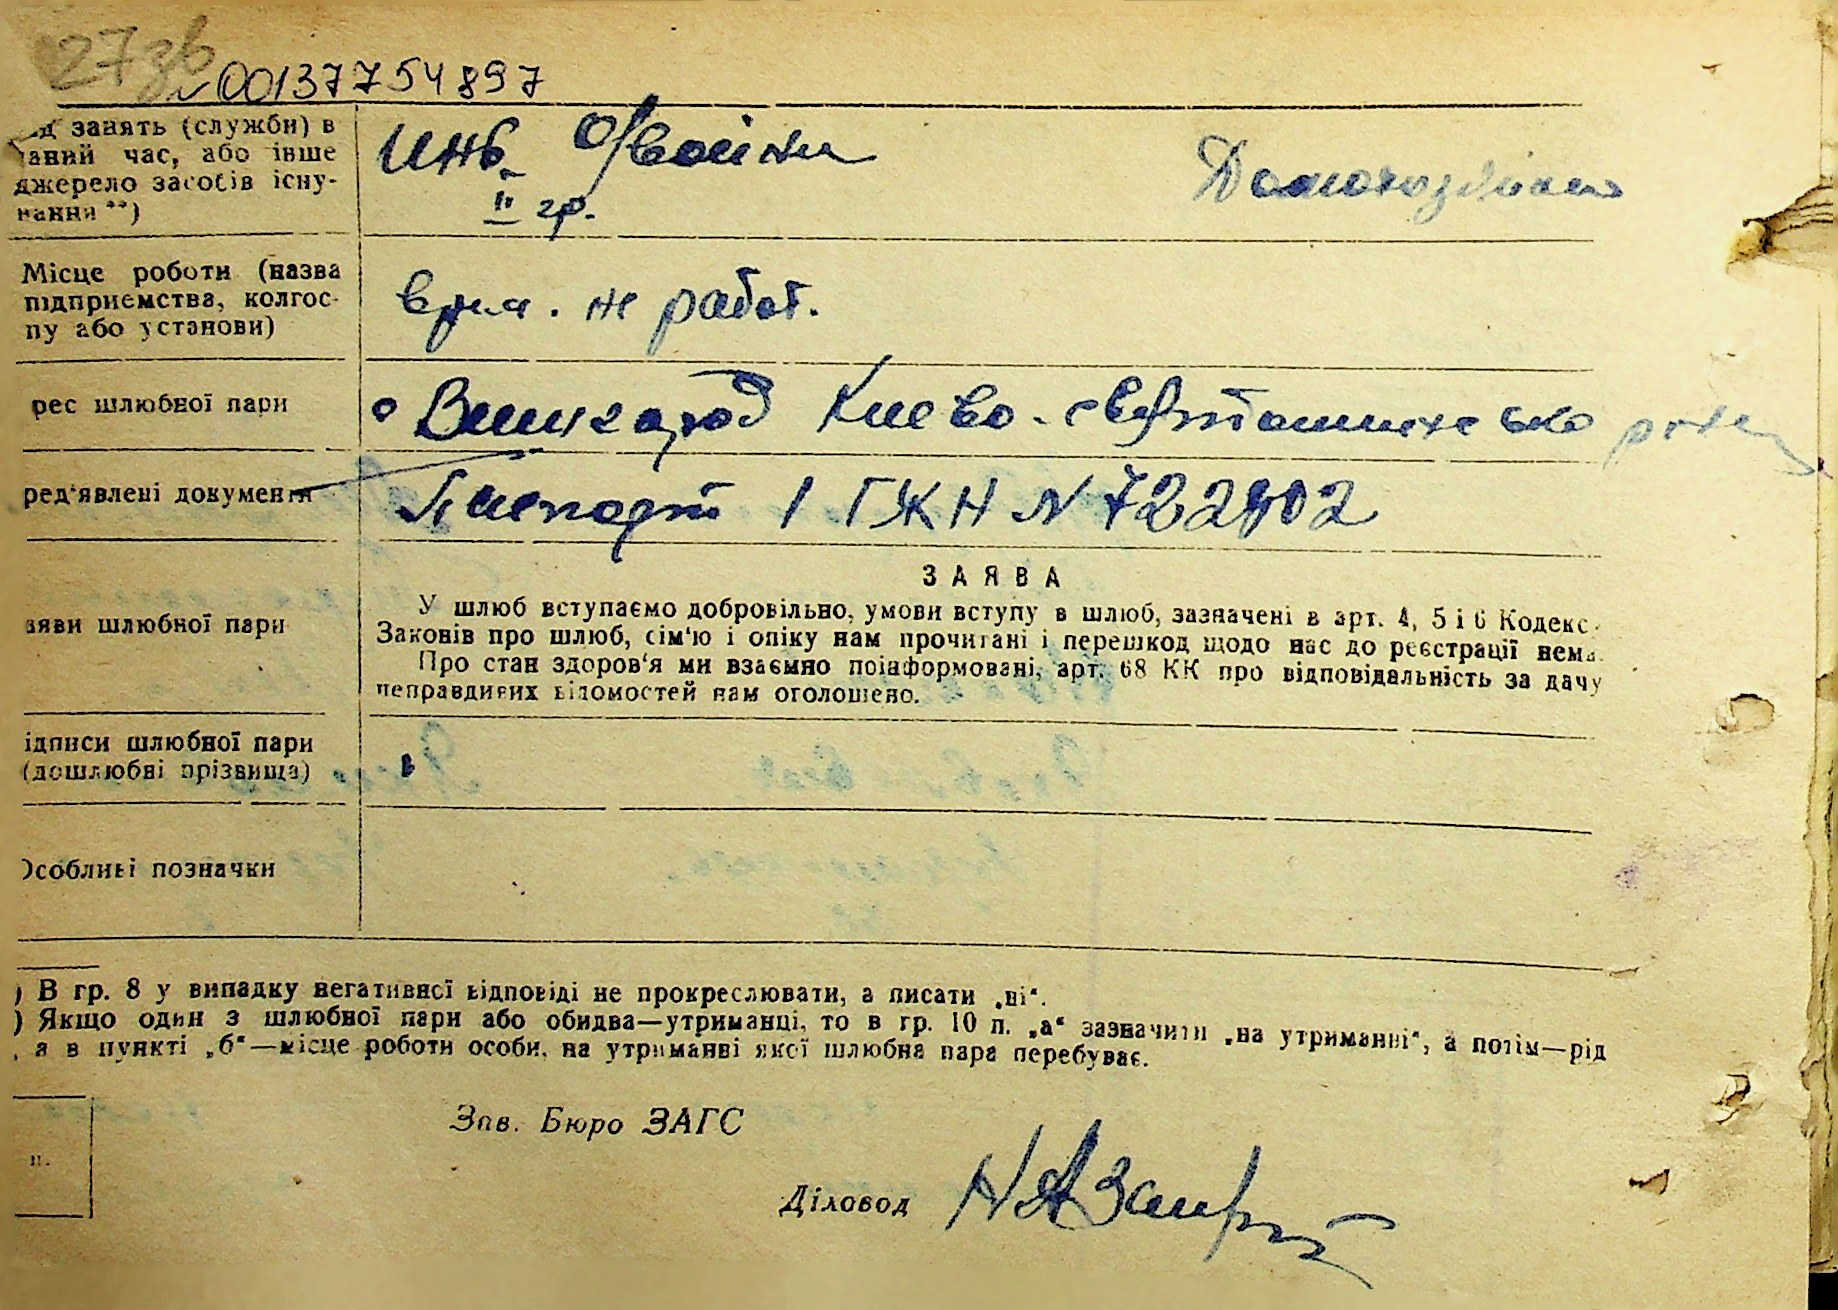 27зв
N 00137754897
ід занять (служби) в
даний час, або інше
джерело засобів існу-
вання **)
Инв. О/войны
II гр.
Домохозяйка
Місце роботи (назва
підприємства, колгос-
пу або установи)
врем. не работ.
рес шлюбної пари
Вишгород Киево-Святошинского
ред'явлені документи
Паспорт І ГЖН N 722902
ЗАЯВА
аяви шлюбної пари
У шлюб вступаємо добровільно, умови вступу в шлюб, зазначені в арт. 4, 5 і 6 Кодекс
Законів про шлюб, сім'ю і опіку нам прочитані і перешкод щодо нас до реєстрації нема.
Про стан здоров'я ми взаємно поінформовані, арт. 68 КК про відповідальність за дачу
неправдивих відомостей нам оголошено.
ідписи шлюбної пари
(дошлюбні прізвища)
Особливі позначки
) В гр. 8 у випадку негативної відповіді не прокреслювати, а писати „ні“.
) Якщо один з шлюбної пари або обидва—утриманці, то в гр. 10 п. „а“ зазначити „на утриманні“, а потім—рід
, а в пункті „б“—місце роботи особи, на утриманні якої шлюбна пара перебуває.
п.
Зав. Бюро ЗАГС
Діловод